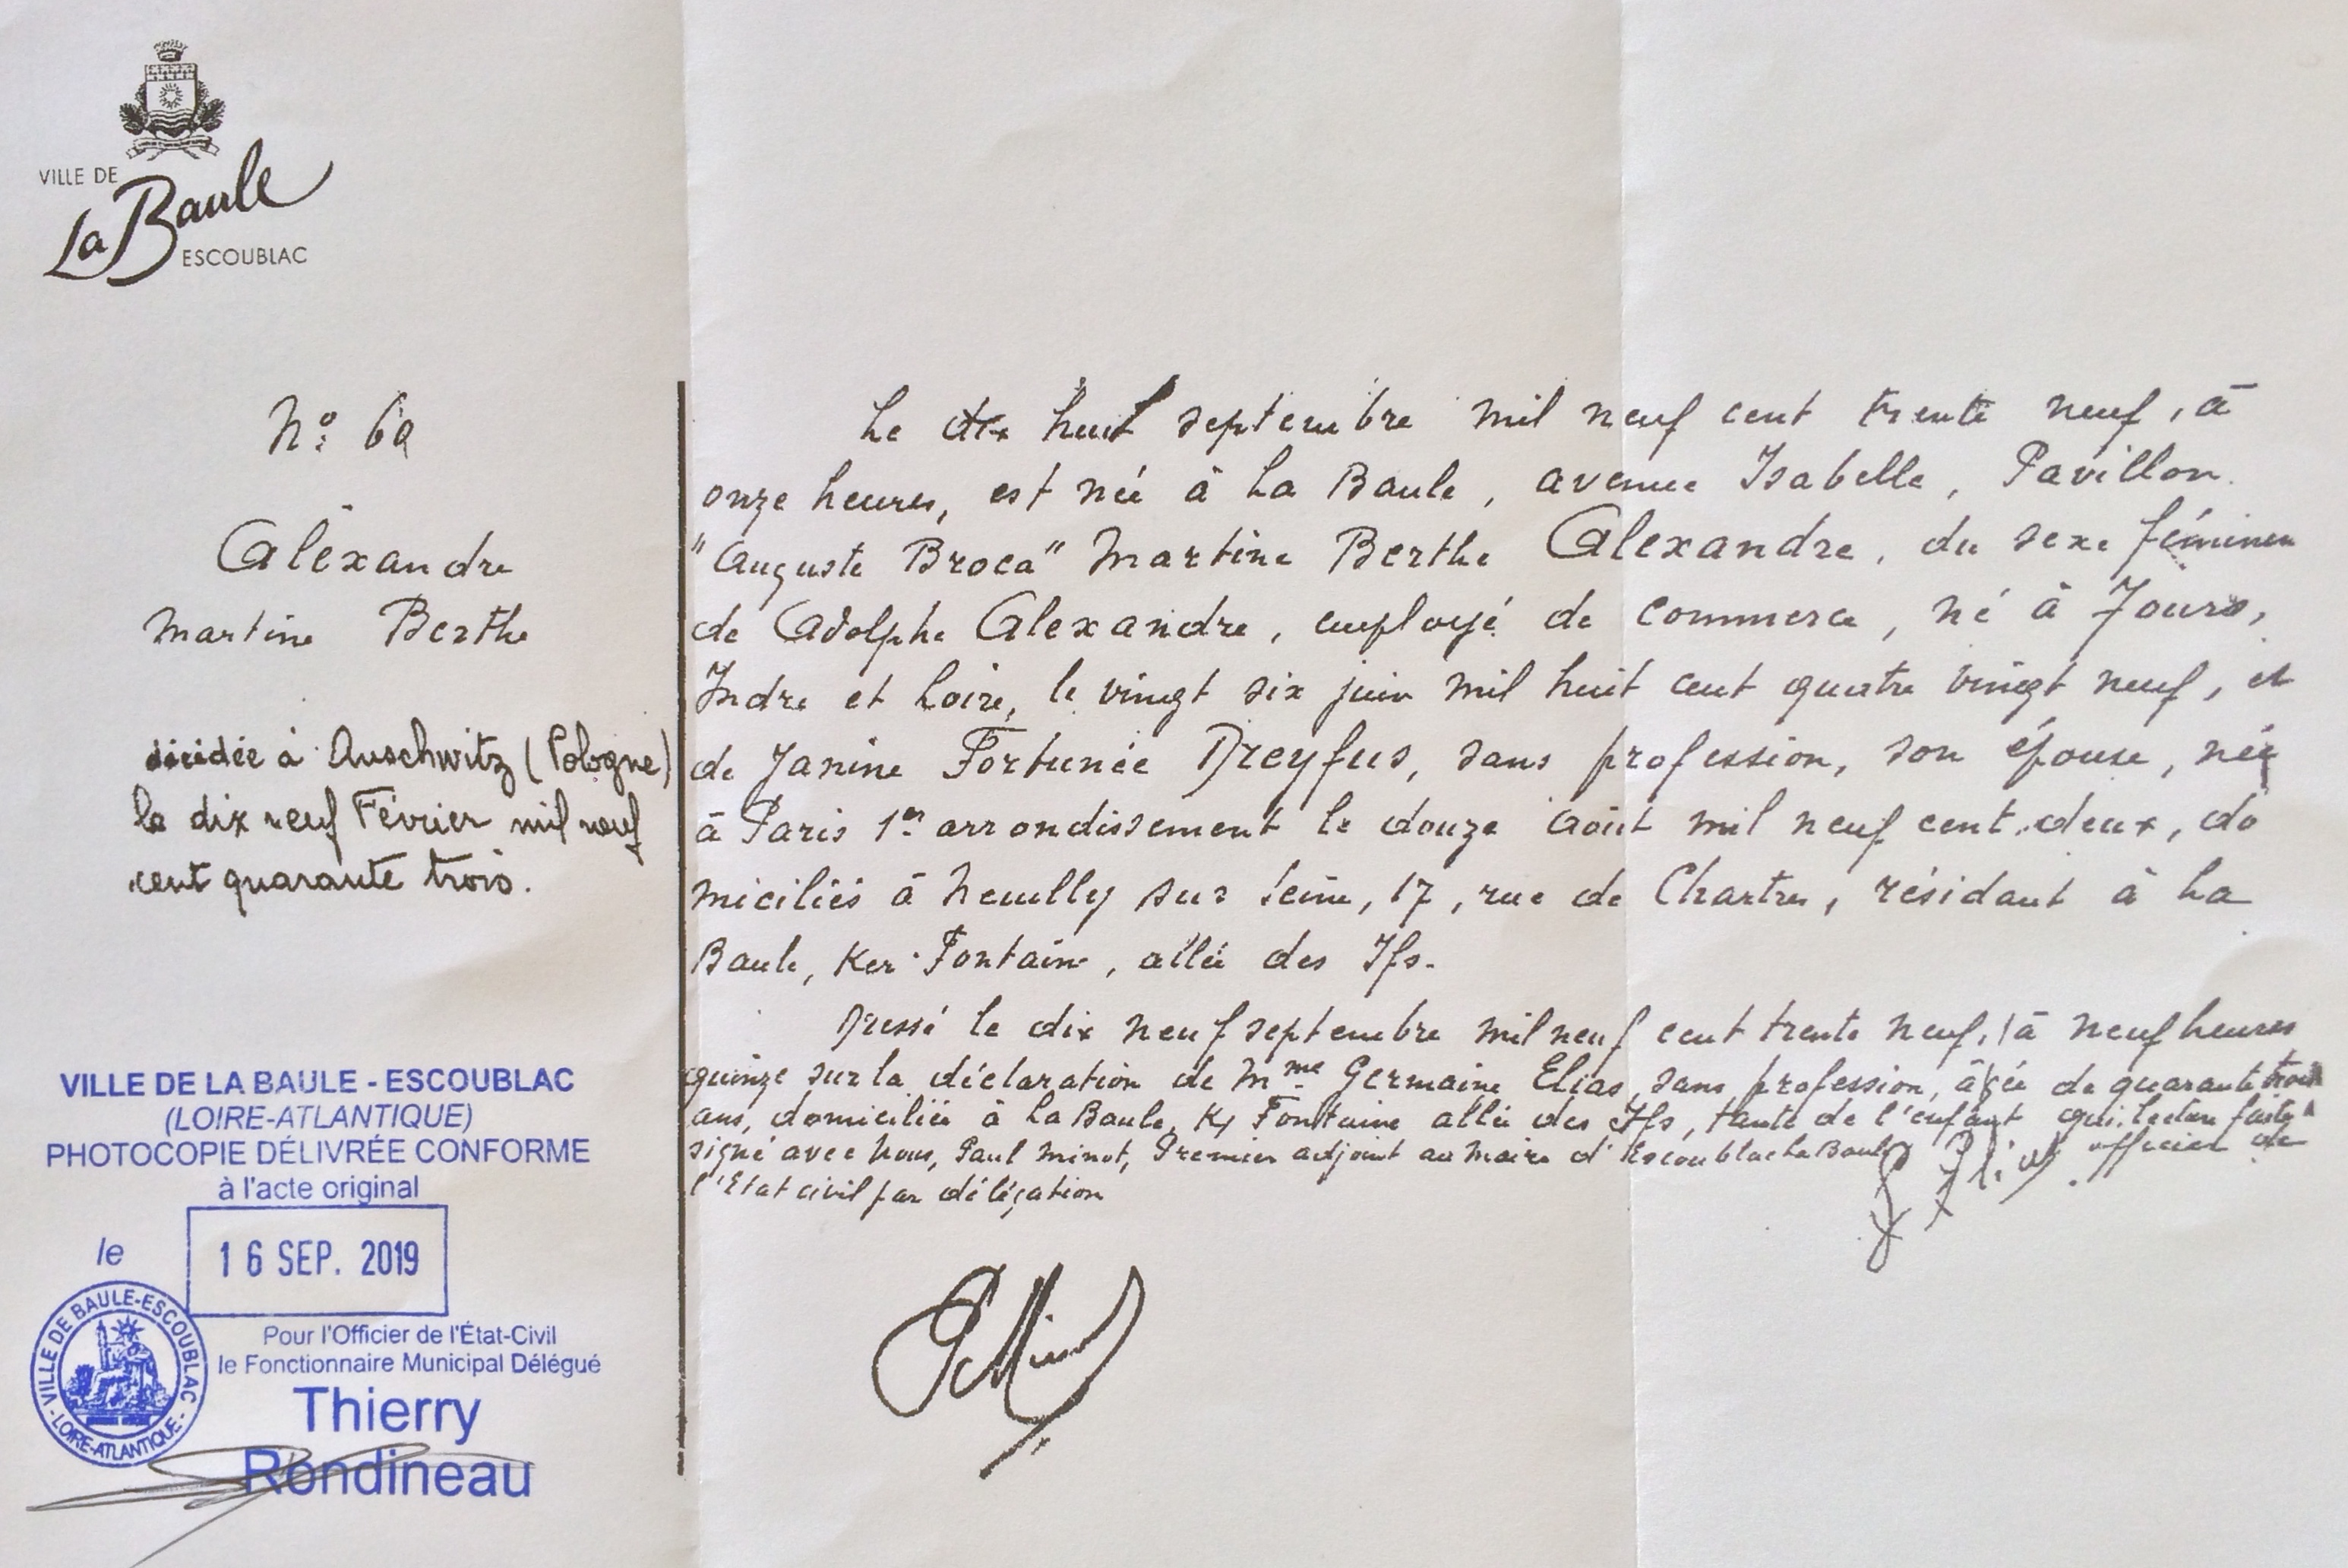 VILLE DE
La Baule
ESCOUBLAC
N° 60
Alexandre
Martine Berthe
décédée à Auschwitz (Pologne)
le dix neuf Février mil neuf
cent quarante trois.
VILLE DE LA BAULE - ESCOUBLAC
(LOIRE-ATLANTIQUE)
PHOTOCOPIE DÉLIVRÉE CONFORME
à l'acte original
le 16 SEP. 2019
VILLE DE BAULE-ESCOUBLAC - LOIRE-ATLANTIQUE -
Pour l'Officier de l'État-Civil
le Fonctionnaire Municipal Délégué
Thierry
Rondineau
Le dix huit septembre mil neuf cent trente neuf, à
onze heures, est née à La Baule, avenue Isabelle, Pavillon
"Auguste Broca" Martine Berthe Alexandre, du sexe féminin
de Adolphe Alexandre, employé de commerce, né à Tours,
Indre et Loire, le vingt six juin mil huit cent quatre vingt neuf, et
de Janine Fortunée Dreyfus, sans profession, son épouse, née
à Paris 1er arrondissement le douze août mil neuf cent deux, do
miciliés à Neuilly sur Seine, 17, rue de Chartres, résidant à La
Baule, Ker Fontaine, allée des Ifs.
Dressé le dix neuf septembre mil neuf cent trente neuf, à neuf heures
quinze sur la déclaration de Mme Germaine Elias, sans profession, âgée de quarante trois
ans, domiciliée à La Baule, Kr Fontaine allée des Ifs, tante de l'enfant qui, lecture faite a
signé avec Nous, Paul Minot, Premier adjoint au Maire d'Escoublac La Baule officier de
l'Etat civil par délégation